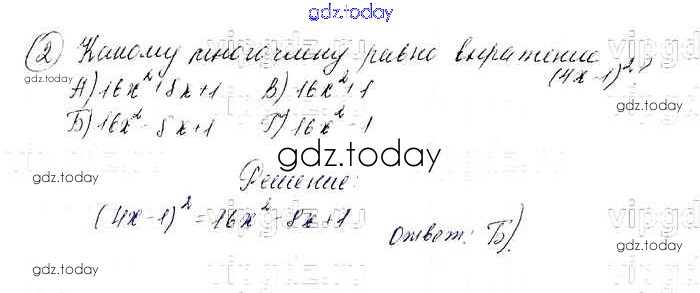 gdz.today
2) Какому многочлену равно выражение
(4x-1)²?
А) 16x²+8x+1 В) 16x²+1
Б) 16x²-8x+1 Г) 16x²-1
gdz.today
Решение:
(4x-1)²=16x²-8x+1
Ответ: Б).
gdz.today